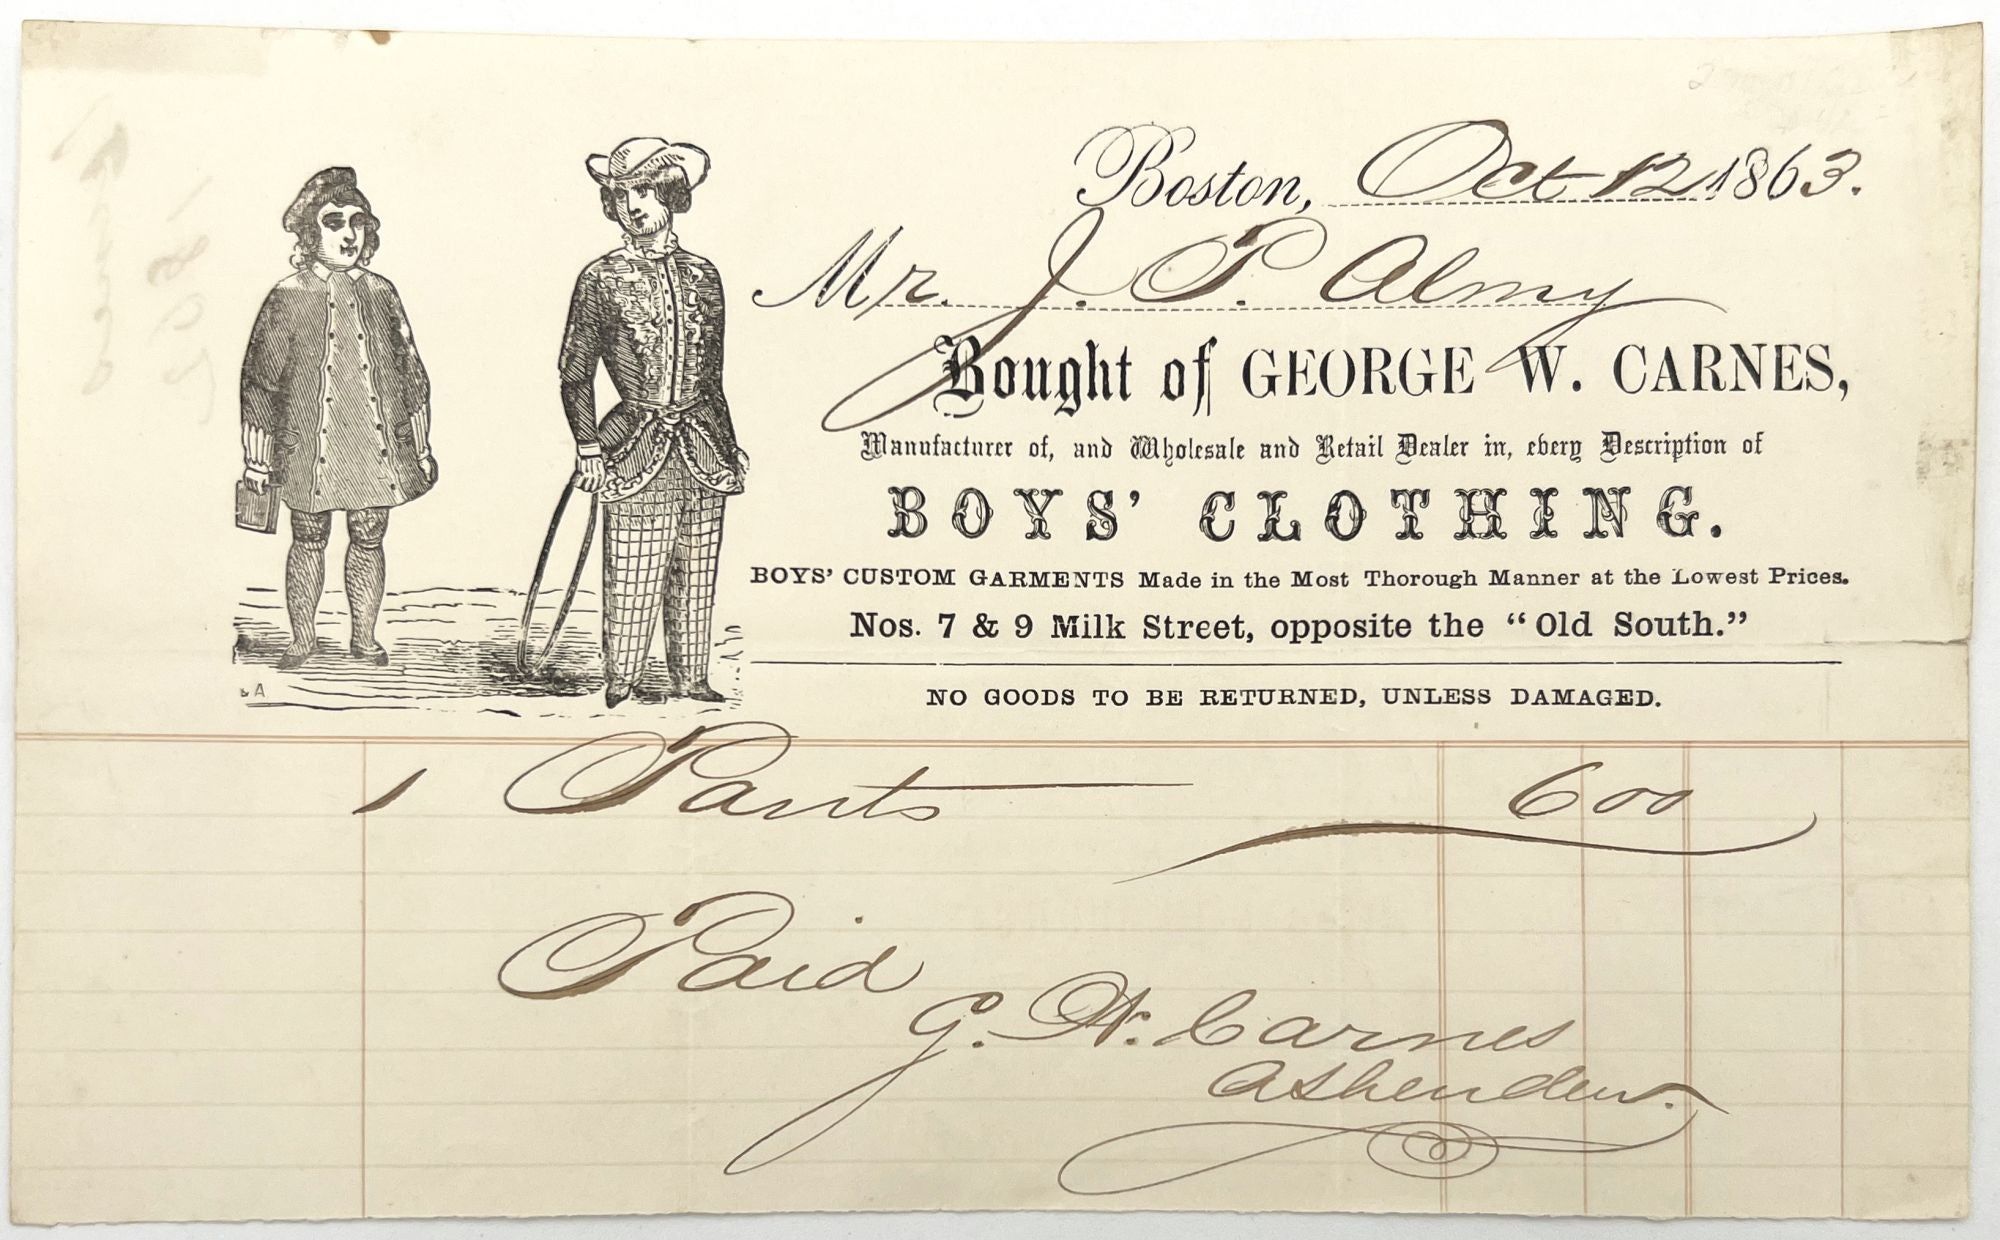 Boston, Oct 12 1863.
Mr. J. P. Almy
Bought of GEORGE W. CARNES,
Manufacturer of, and Wholesale and Retail Dealer in, every Description of
BOYS' CLOTHING.
BOYS' CUSTOM GARMENTS Made in the Most Thorough Manner at the Lowest Prices.
Nos. 7 & 9 Milk Street, opposite the "Old South."
NO GOODS TO BE RETURNED, UNLESS DAMAGED.
1 Pants 6 00
Paid
G. W. Carnes